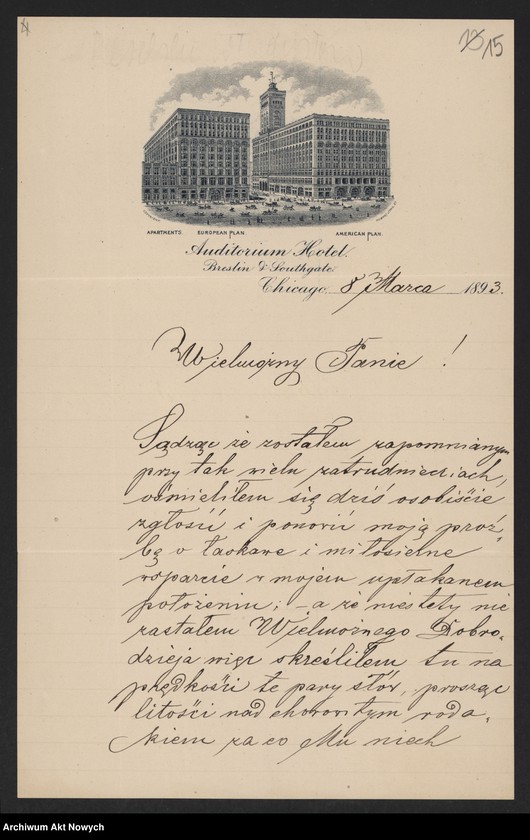 15
APARTMENTS. EUROPEAN PLAN. AMERICAN PLAN.
Auditorium Hotel.
Breslin & Southgate.
Chicago, 8 Marca 1893.
Wielmożny Panie !
Sądząc że zostałem zapomnianym
przy tak wielu zatrudnieniach,
ośmieliłem się dziś osobiście
zgłosić i ponowić moją proź-
bę o łaskawe i miłosielne
wsparcie w mojem upłakanem
położeniu; – a że niestety nie
zastałem Wielmożnego Dobro-
dzieja więc skreśliłem tu na
prędkości te parę słów, prosząc
litości nad chorowitym roda-
kiem za co Mu niech
Archiwum Akt Nowych